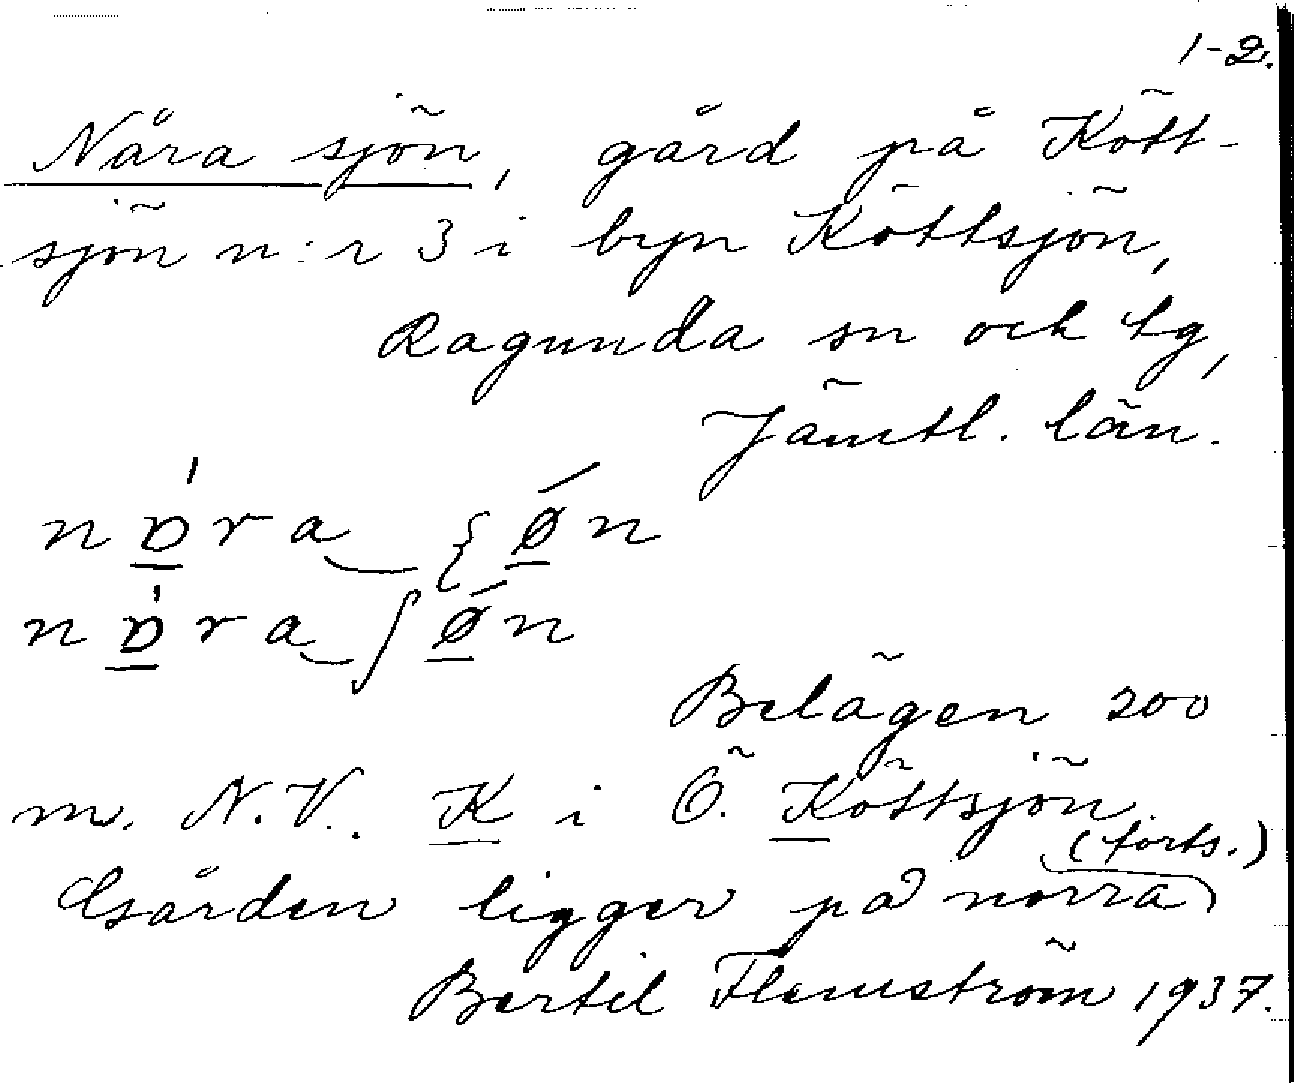 1-2.
Nåra sjön, gård på Kött-
sjön n:r 3 i byn Köttsjön,
Ragunda sn och tg,
Jämtl. län.
Belägen 200
m. N.V. K i Ö. Köttsjön.
(forts.)
Gården ligger på norra
Bertil Flemström 1937.